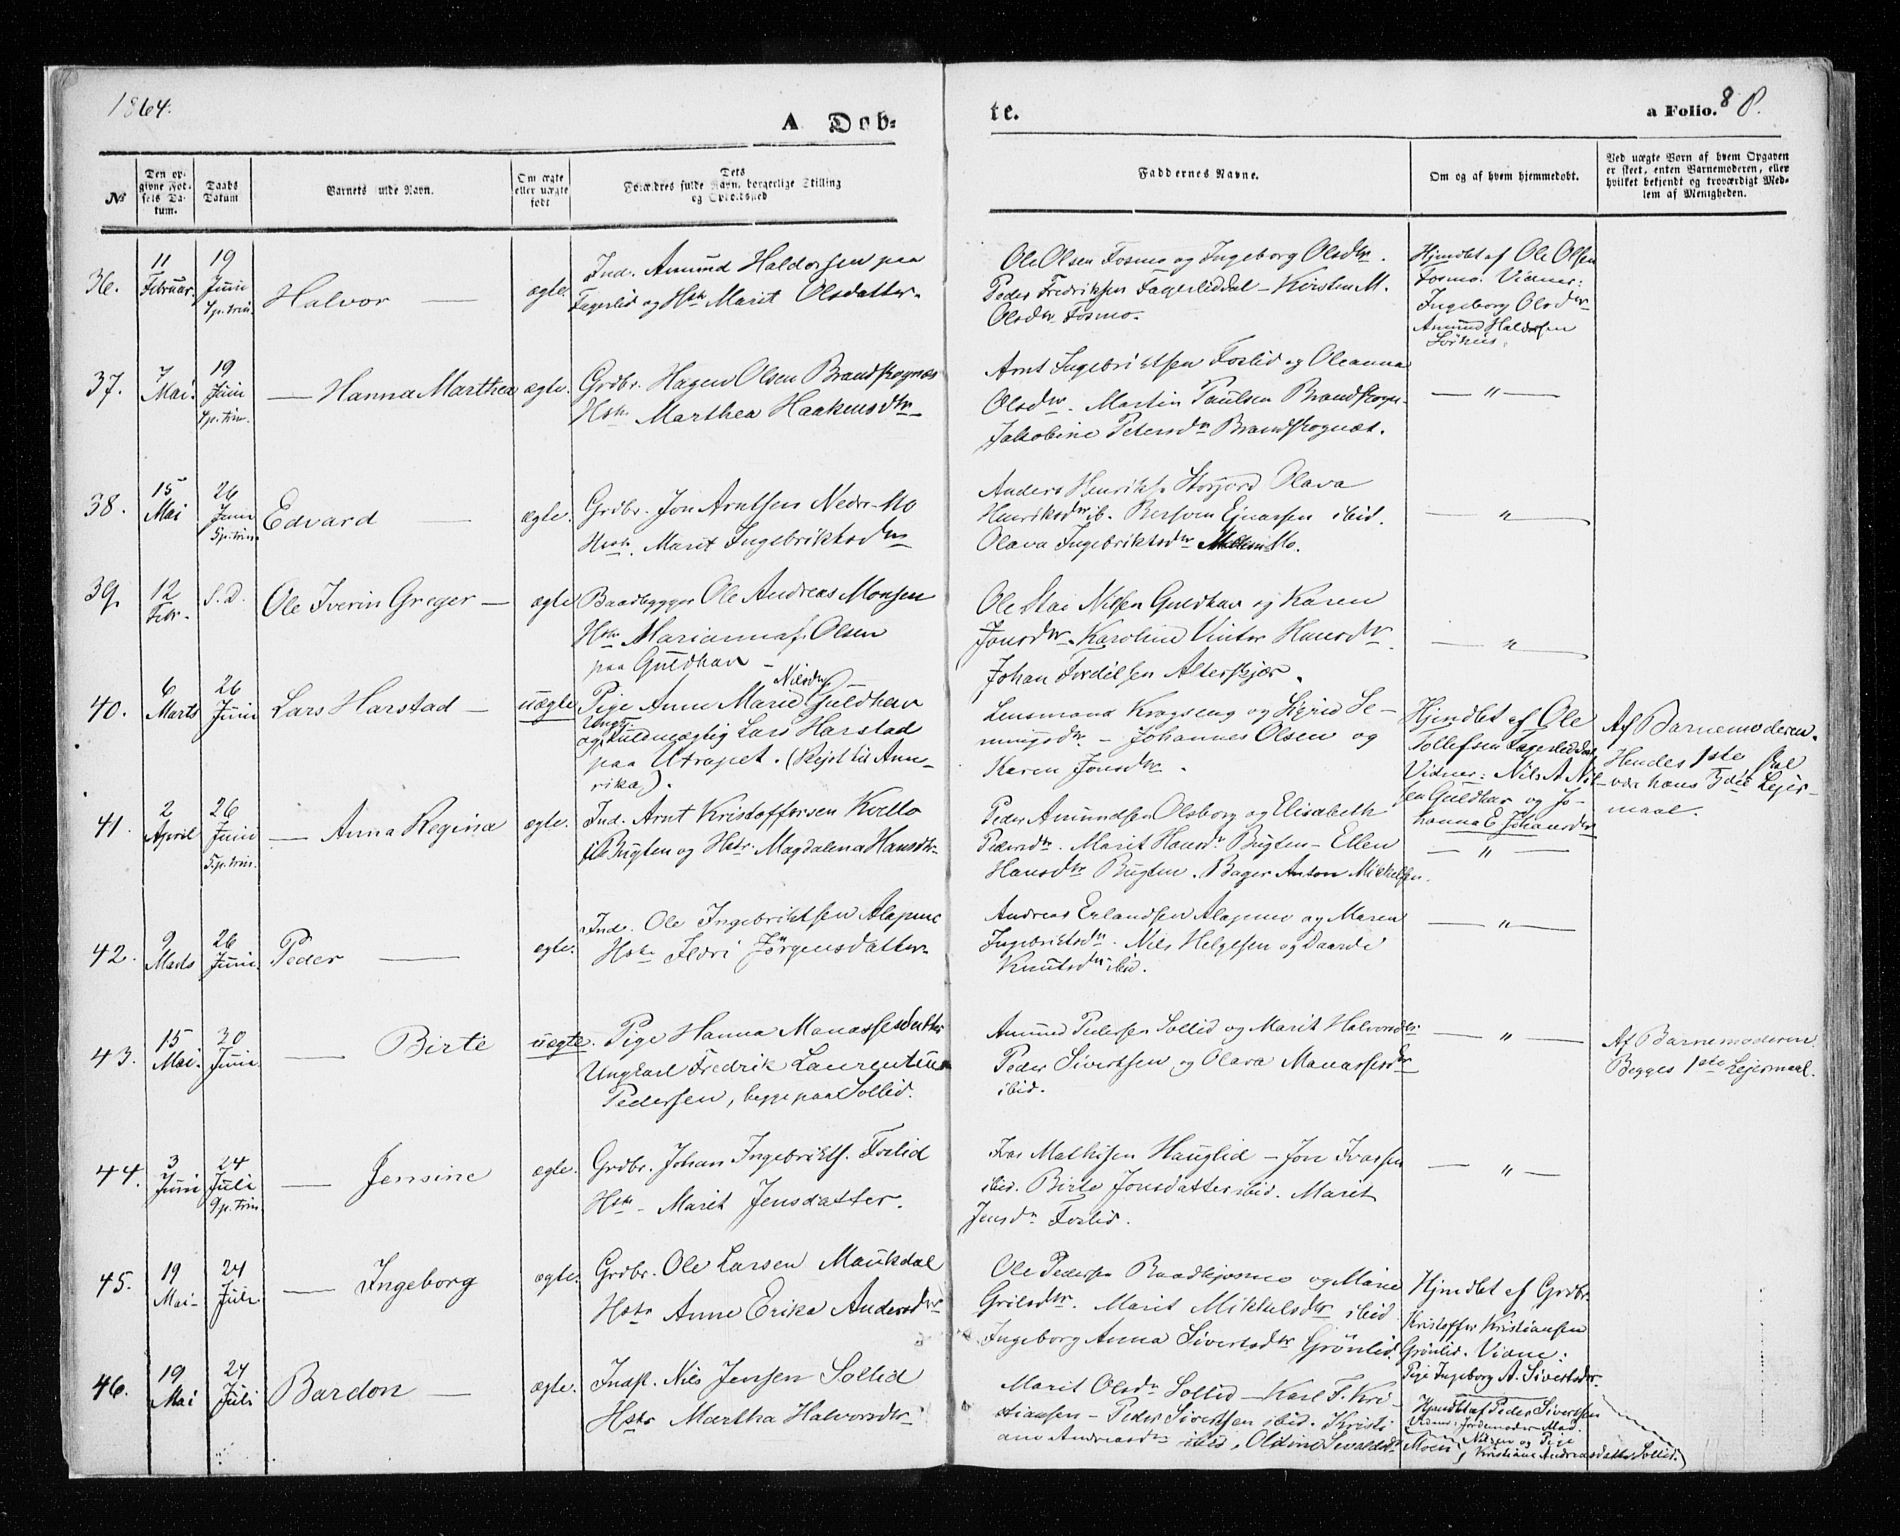 1864.
A Døb-
te.
a Folio. 8 8.
No
Den op-
givne Fød-
sels Da-
tum.
Daabs
Datum
Barnets fulde Navn.
Om ægte
eller uægte
født
Dets
Forældres fulde Navn, borgerlige Stilling
og Opholdssted
Faddernes Navne.
Om og af hvem hjemmedøbt.
Ved uægte Børn af hvem Opgaven
er skeet, enten Barnemoderen, eller
hvilket bekjendt og troværdigt Med-
lem af Menigheden.
36.
11
Februar.
19
Juni
4 p. trin.
Halvor —
ægte.
Ind. Amund Haldorsen paa
Fagerlid og Hstr Marit Olsdatter.
Ole Olsen Fosmo og Ingeborg Olsdtr.
Peder Fredriksen Fagerliddal — Kirsten M.
Olsdtr Fosmo.
Hjmdbt af Ole Olsen
Fosmo. Vidner:
Ingeborg Olsdtr
Amund Haldorsen
37.
7
Mai.
19
Juni
4 p. trin.
— Hanna Marthea
ægte.
Grdbr. Hagen Olsen Brandskognæs
Hstr Marthea Haakensdtr
Arnt Ingebriktsen Foslid og Oleanna
Olsdtr. Martin Paulsen Brandskogn.
Jakobine Petersdtr Brandskognæs.
— " —
38.
15
Mai
26
Juni
5 p. trin.
Edvard —
ægte.
Grdbr. Jon Arntsen Nedre Mo
Hstr. Marit Ingebriktsdtr
Anders Henriks. Storjord Olava
Henriksdtr ib. Bersven Ejnarsen ibid.
Olava Ingebriktsdtr Mo.
— " —
39.
12
Febr.
S. D.
Ole Iverin Greger —
ægte
Baadbygger Ole Andreas Monsen
Hstr Marianna f. Olsen
paa Guldhav —
Ole Nilsen Guldhav og Karen
Jonsdtr. Karoline Vinter Hansdtr.
Johan Fordelsen Alterskjær.
— " —
40.
6
Marts
26
Juni
Lars Harstad —
uægte
Nilsdtr
Pige Anne Marie Guldhav
Ungk.
og Fuldmægtig Lars Harstad
paa Utrapet. (Rejst til Ame-
rika).
Lensmand Kragseng og Sigrid Se-
mingsdtr — Johannes Olsen og
Karen Jonsdtr.
Hjmdbt af Ole
Tollefsen Fagerliddal
Vidner: Nils A Nil-
sen Guldhav og Jo-
hanna E. Johansdtr
Af Barnemoderen.
Hendes 1ste skal
være hans Lejer-
maal.
41.
2
April
26
Juni
5 p. trin.
— Anna Regina
ægte.
Ind. Arnt Kristoffersen Kvello
Bugten og Hstr. Magdalena Hansdtr.
Peder Amundsen Olsborg og Elisabeth
Pedersdtr. Marit Hansdtr Bugten — Ellen
Hansdtr Bugten. Bager Anton Mikkelsen.
— " —
42.
9
Marts
26
Juni.
Peder —
ægte.
Ind. Ole Ingebriktsen Alapmo
Hstr Ildri Jørgensdatter
Andreas Erlandsen Alapmo og Maren
Ingebriktsdtr. Nils Helgesen og Daarde
Knutsdtr ibid.
— " —
43.
15
Mai.
30
Juni.
— Birte
uægte.
Pige Hanna Manassesdatter
Ungkarl Fredrik Laurentius
Pedersen, begge paa Sollid.
Amund Pedersen Sollid og Marit Halvorsdtr
Peder Sivertsen og Olava Manassesdtr
ibid.
— " —
Af Barnemoderen.
Begges 1ste Lejermaal.
44.
3
Juni
24
Juli
9 p. trin
— Jensine
ægte.
Grdbr. Johan Ingebrikts. Foslid
Hstr — Marit Jensdatter.
Ivar Mathisen Hauglid — Jon Ivarsen
ibid. Birte Jonsdatter ibid. Marit
Jensdtr Foslid.
— " —
45.
19
Mai —
24
Juli.
— Ingeborg
ægte.
Grdbr. Ole Larsen Maukdal
Hstr Anne Erika Andersdtr
Ole Pedersen og Marie
Grilsdtr. Marit Mikkelsdtr ibid
Ingeborg Anna Sivertsdtr Grønlid.
Hjmdbt af Grdbr.
Kristoffer Kristiansen
Grønlid. Vidne:
Pige Ingeborg A. Sivertsdtr.
46.
19
Mai
24
Juli
Bardon —
ægte.
Indst. Nils Jensen Sollid
Hstr Martha Halvorsdtr
Marit Olsdtr Sollid — Karl F. Kri-
stiansen — Peder Sivertsen ibid. Kristi-
ane Andreasdtr ibid. Oldine Sivertsdtr Moen
Hjmdbt af Peder Sivertsen
Vidner: Jordemoder Mad.
Nilsen og Pige
Kristiane Andreasdatter Sollid.)